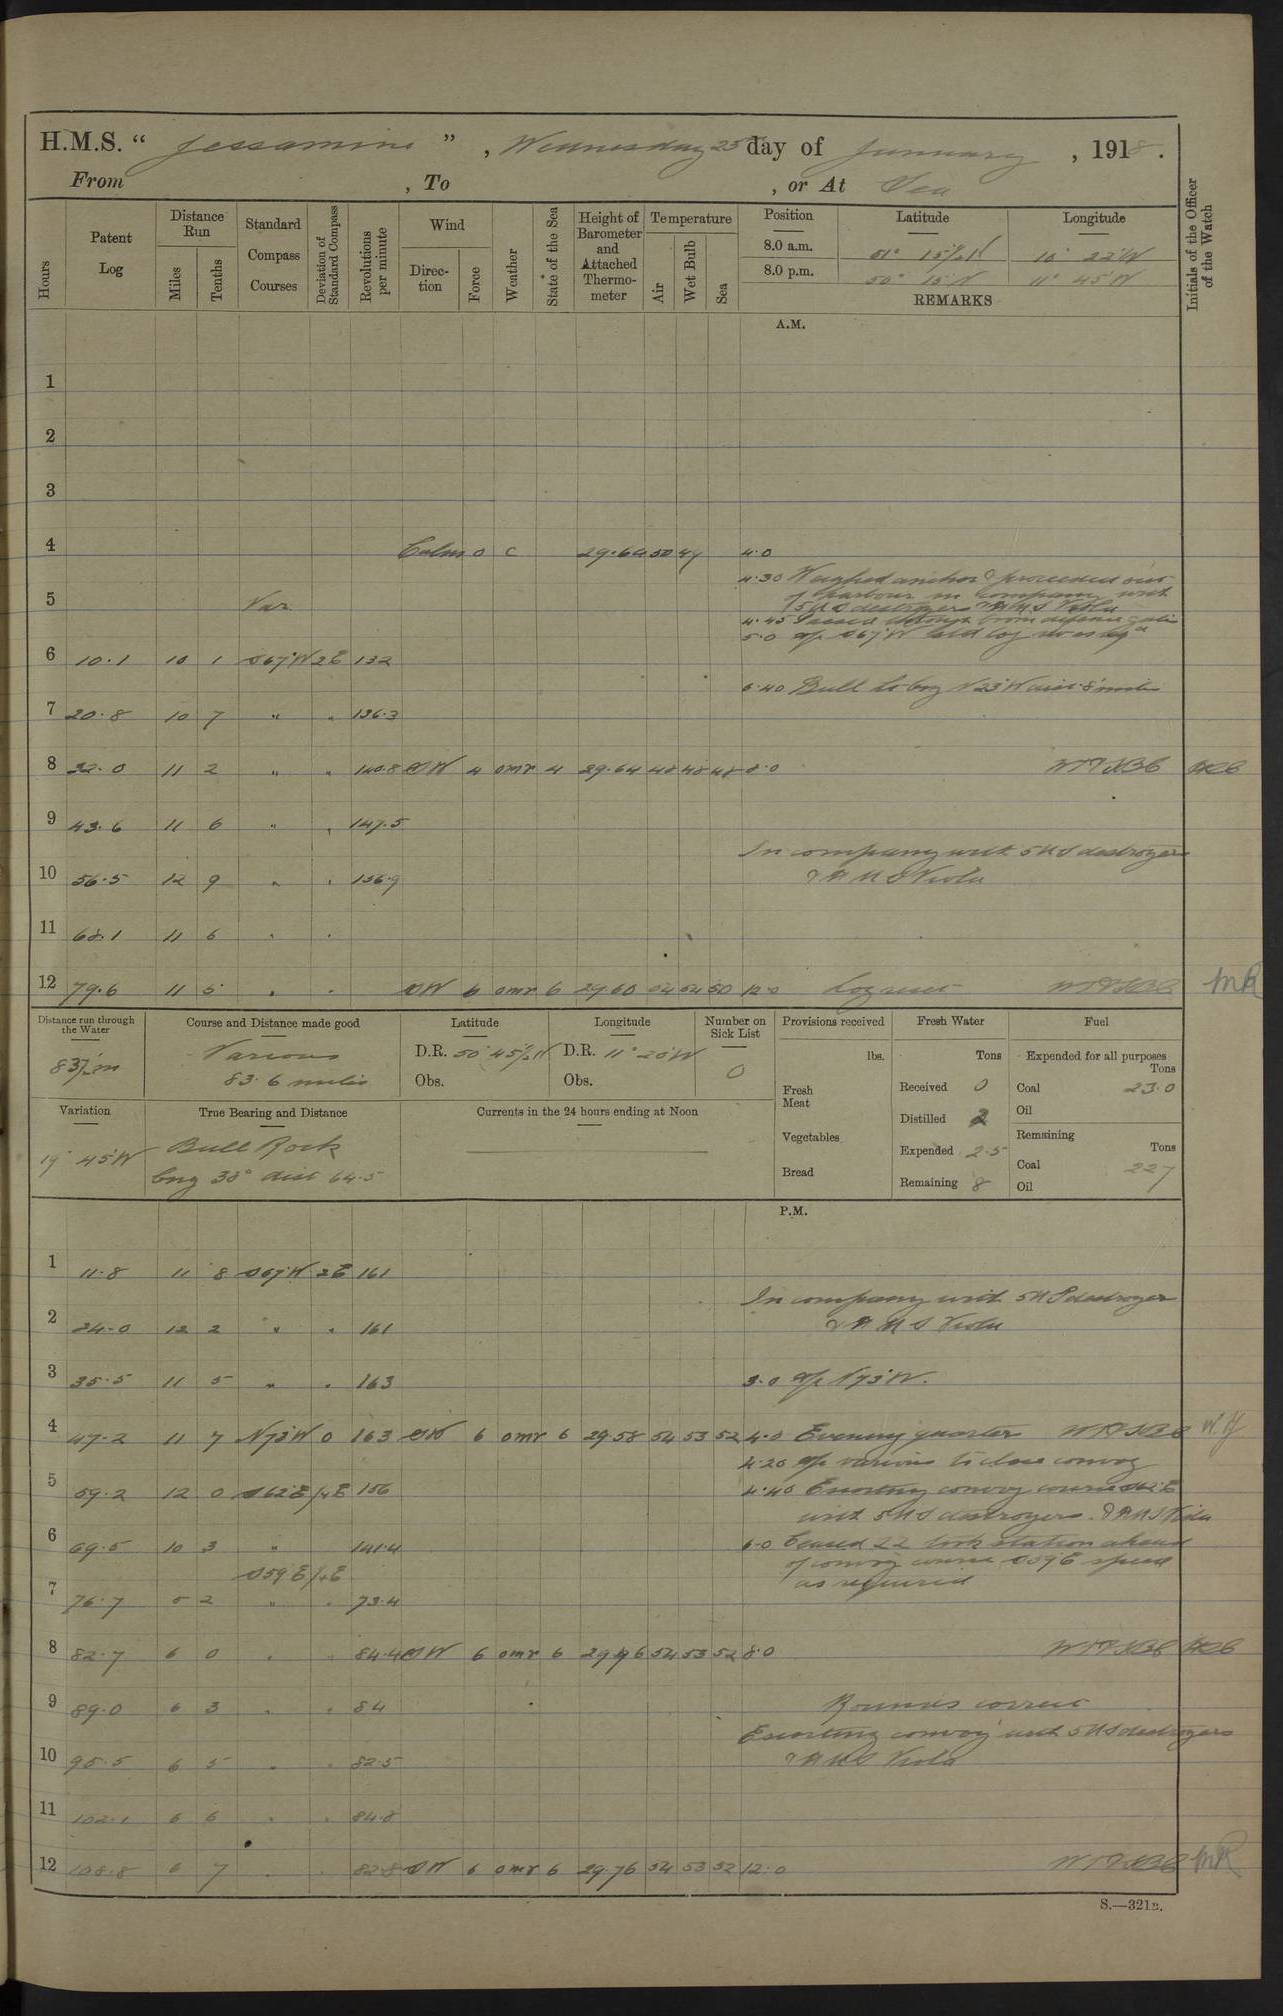 H.M.S. " Jessamine ", Wednesday day of January, 1918.
From , To , or At Sea
Hours
Patent Log
Distance Run
Miles
Tenths
Standard Compass Courses
Deviation of Standard Compass
Revolutions per minute
Wind
Direction
Force
Weather
State of the Sea
Height of Barometer and Attached Thermometer
Temperature
Air
Wet Bulb
Sea
Position Latitude Longitude
8.0 a.m. 51° 15½N 10° 22'W
8.0 p.m. 50° 15'N 11° 45'W
REMARKS
Initials of the Officer of the Watch
A.M.
1
2
3
4 Calm 0 c 29.64 50 47 4.0
4.30 Weighed anchor & proceeded out
of harbour in company with
5 Var 5 US destroyers & HMS Viola
4.45 Passed through boom defence gate
5.0 a/c S67°W
6 10.1 10 1 S67°W 2E 132
6.40 Bull Lt brg N23°W dist 8 miles
7 20.8 10 7 " " 136.3
8 32.0 11 2 " " 140.8 SW 4 omr 4 29.64 48 48 48 8.0
9 43.6 11 6 " " 147.5
In company with 5 US destroyers
10 56.5 12 9 " " 156.9 & HMS Viola
11 68.1 11 6 " "
12 79.6 11 5 " " SW 6 omr 6 29.60 54 54 50 12.0 Log reset MR
Distance run through the Water
83½m
Course and Distance made good
Various
83.6 miles
Latitude
D.R. 50° 45½N
Obs.
Longitude
D.R. 11° 20'W
Obs.
Number on Sick List
0
Provisions received
lbs.
Fresh Meat
Vegetables
Bread
Fresh Water
Tons
Received 0
Distilled 2
Expended 2.5
Remaining 8
Fuel
Expended for all purposes
Tons
Coal 23.0
Oil
Remaining
Tons
Coal 227
Oil
Variation
19° 45'W
True Bearing and Distance
Bull Rock
brg 35° dist 64.5
Currents in the 24 hours ending at Noon
P.M.
1 11.8 11 8 S67°W 2E 161
In company with 5 US destroyer
2 24.0 12 2 " " 161 & HMS Viola
3 35.5 11 5 " " 163 3.0 a/c N73°W.
4 47.2 11 7 N73°W 0 163 SW 6 omr 6 29.58 54 53 52 4.0 Evening quarters
4.20 a/c various to close convoy
5 59.2 12 0 S62°E 156 4.40 Escorting convoy course S62°E
with 5 US destroyers. & HMS Viola
6 69.5 10 3 " 141.4 6.0 took station ahead
of convoy course S59°E speed
S59°E as required
7 76.7 5 2 " " 73.4
8 82.7 6 0 " " 84.4 SW 6 omr 6 54 53 52 8.0
9 89.0 6 3 " " 84 Rounds correct
Escorting convoy with 5 US destroyers
10 95.5 6 5 " " 82.5 & HMS Viola
11 102.1 6 6 " " 84.8
12 108.8 6 7 " " 82.8 SW 6 omr 6 29.76 54 53 52 12.0 MR
S.—321B.